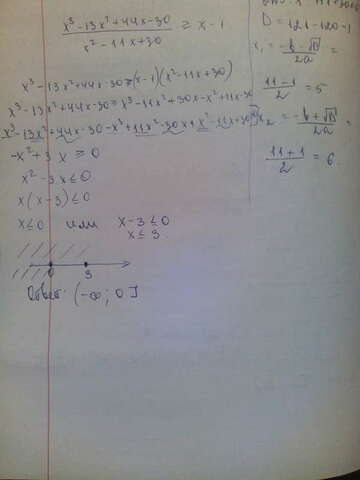 x³ - 13x² + 44x - 30 / x² - 11x + 30 ≥ x - 1
x³ - 13x² + 44x - 30 ≥ (x - 1)(x² - 11x + 30)
x³ - 13x² + 44x - 30 ≥ x³ - 11x² + 30x - x² + 11x - 30
x³ - 13x² + 44x - 30 - x³ + 11x² - 30x + x² - 11x + 30
-x² + 3x ≥ 0
x² - 3x ≤ 0
x(x - 3) ≤ 0
x ≤ 0 или x - 3 ≤ 0
x ≤ 3
0 3
Ответ: (-∞; 0]
D = 121 - 120 = 1
x₁ = -b - √D / 2a =
11 - 1 / 2 = 5
x₂ = -b + √D / 2a =
11 + 1 / 2 = 6